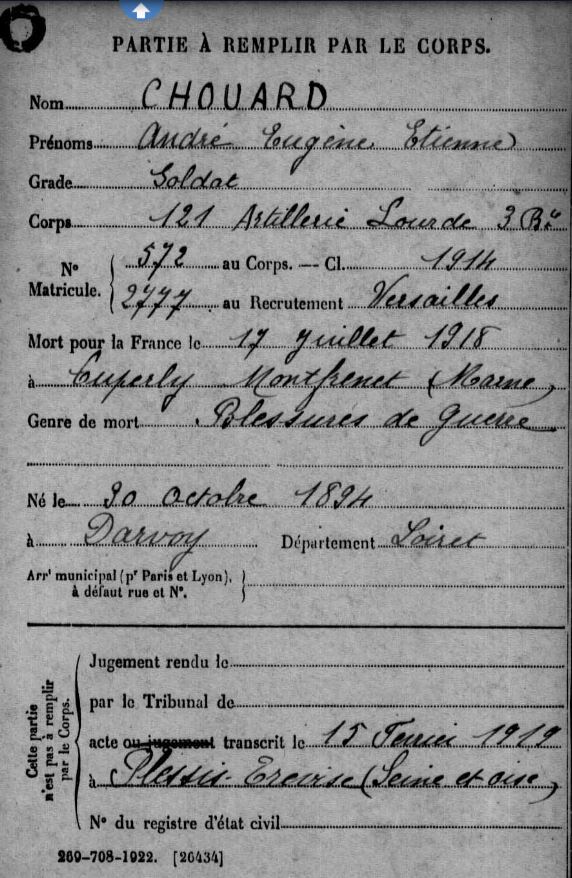 PARTIE À REMPLIR PAR LE CORPS.
Nom CHOUARD
Prénoms André Eugène Etienne
Grade Soldat
Corps 121 Artillerie Lourde 3 Bie
N° Matricule. 572 au Corps. — Cl. 1914
2777 au Recrutement Versailles
Mort pour la France le 17 Juillet 1918
à Cuperly Montfrenet (Marne)
Genre de mort Blessures de Guerre
Né le 30 Octobre 1894
à Darvoy Département Loiret
Arrt municipal (pr Paris et Lyon),
à défaut rue et N°.
Cette partie n'est pas à remplir par le Corps.
Jugement rendu le
par le Tribunal de
acte ou jugement transcrit le 15 Fevrier 1919
à Plessis- (Seine et oise)
N° du registre d'état civil
269-708-1922. [26434]